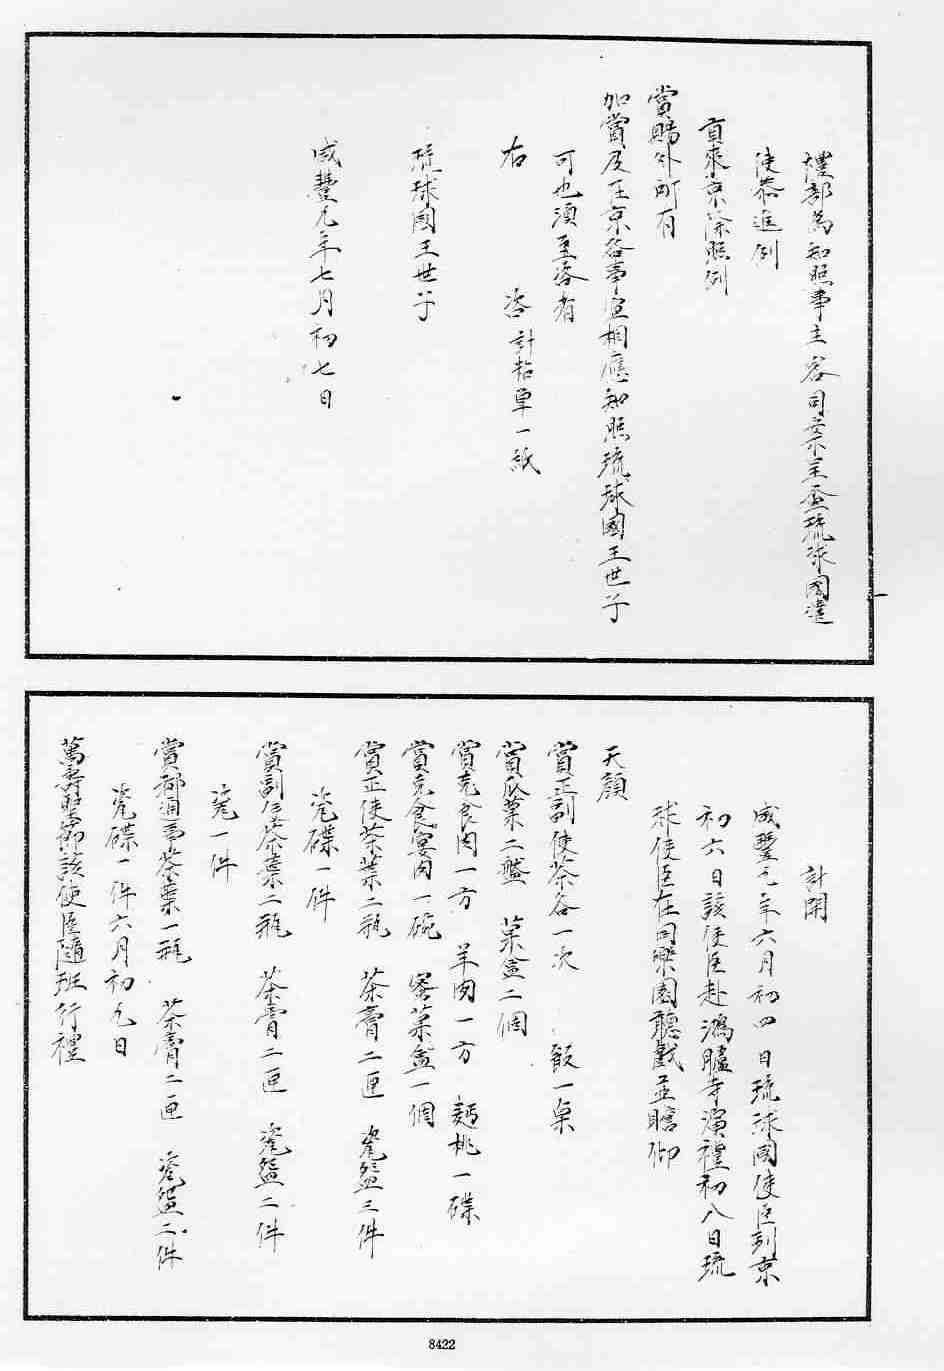 禮部爲知照事主客司案呈查琉球國遣
使恭進例
貢來京除照例
賞賜外所有
加賞及在京各事宜相應知照琉球國王世子
可也須至咨者
右 咨 計粘單一紙
琉球國王世子
咸豐元年七月初七日
計開
咸豐元年六月初四 日琉球國使臣到京
初六日該使臣赴鴻臚寺演禮初八日琉
球使臣在同樂園聽戲並瞻仰
天顏
賞正副使茶各一次 飯一桌
賞瓜菓二盤 菓盒二個
賞克食肉一方 羊肉一方 麵桃一碟
賞克食宴肉一碗 蜜菓盒一個
賞正使茶葉二瓶 茶膏二匣 瓷盤三件
瓷碟一件
賞副使茶葉二瓶 茶膏二匣 瓷盤二件
瓷一件
賞都通事茶葉一瓶 茶膏二匣 瓷盤二件
瓷碟一件六月初九日
萬壽聖節該使臣隨班行禮
8422